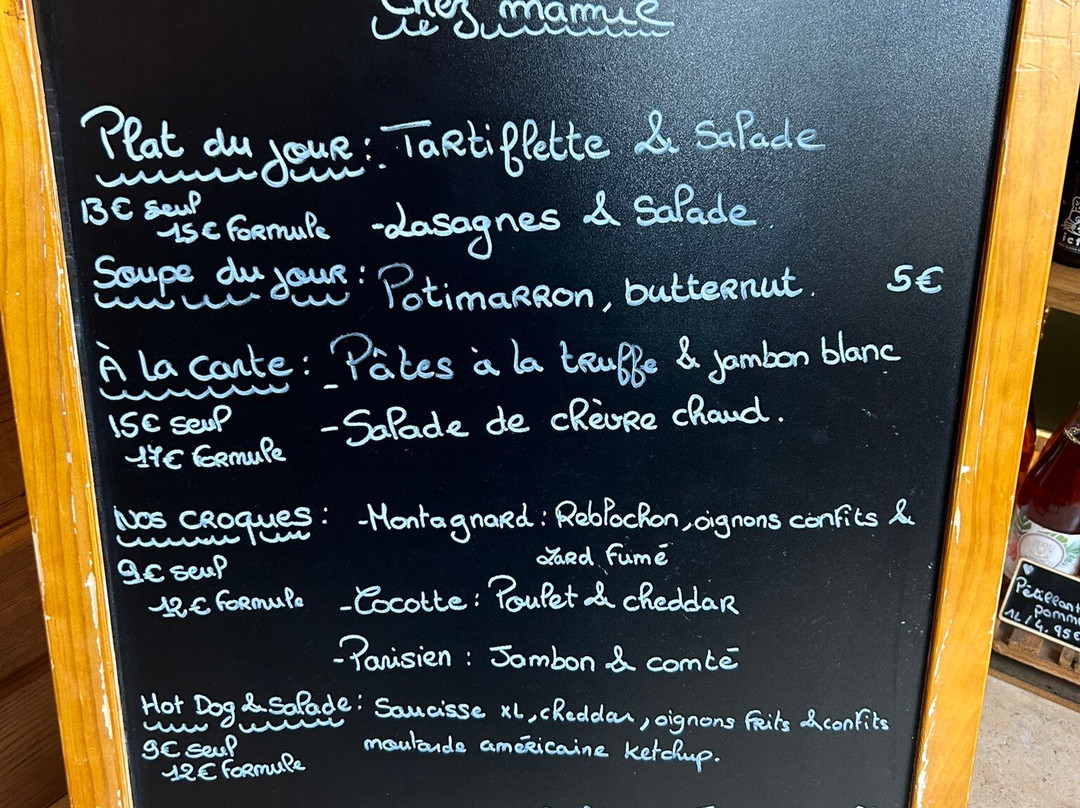 Chez mamie
Plat du jour : - Tartiflette & Salade
13€ seul
15€ Formule - Lasagnes & Salade
Soupe du jour : Potimarron, butternut. 5€
À la carte : - Pâtes à la truffe & jambon blanc
15€ seul - Salade de chèvre chaud.
17€ formule
Nos croques : - Montagnard : Reblochon, oignons confits &
Lard fumé
9€ seul
12€ Formule - Cocotte : Poulet & cheddar
- Parisien : Jambon & comté
Hot Dog & Salade : Saucisse XL, cheddar, oignons frits & confits
9€ seul moutarde américaine ketchup.
12€ Formule
Pétillant
pomme
1L / 4.95€